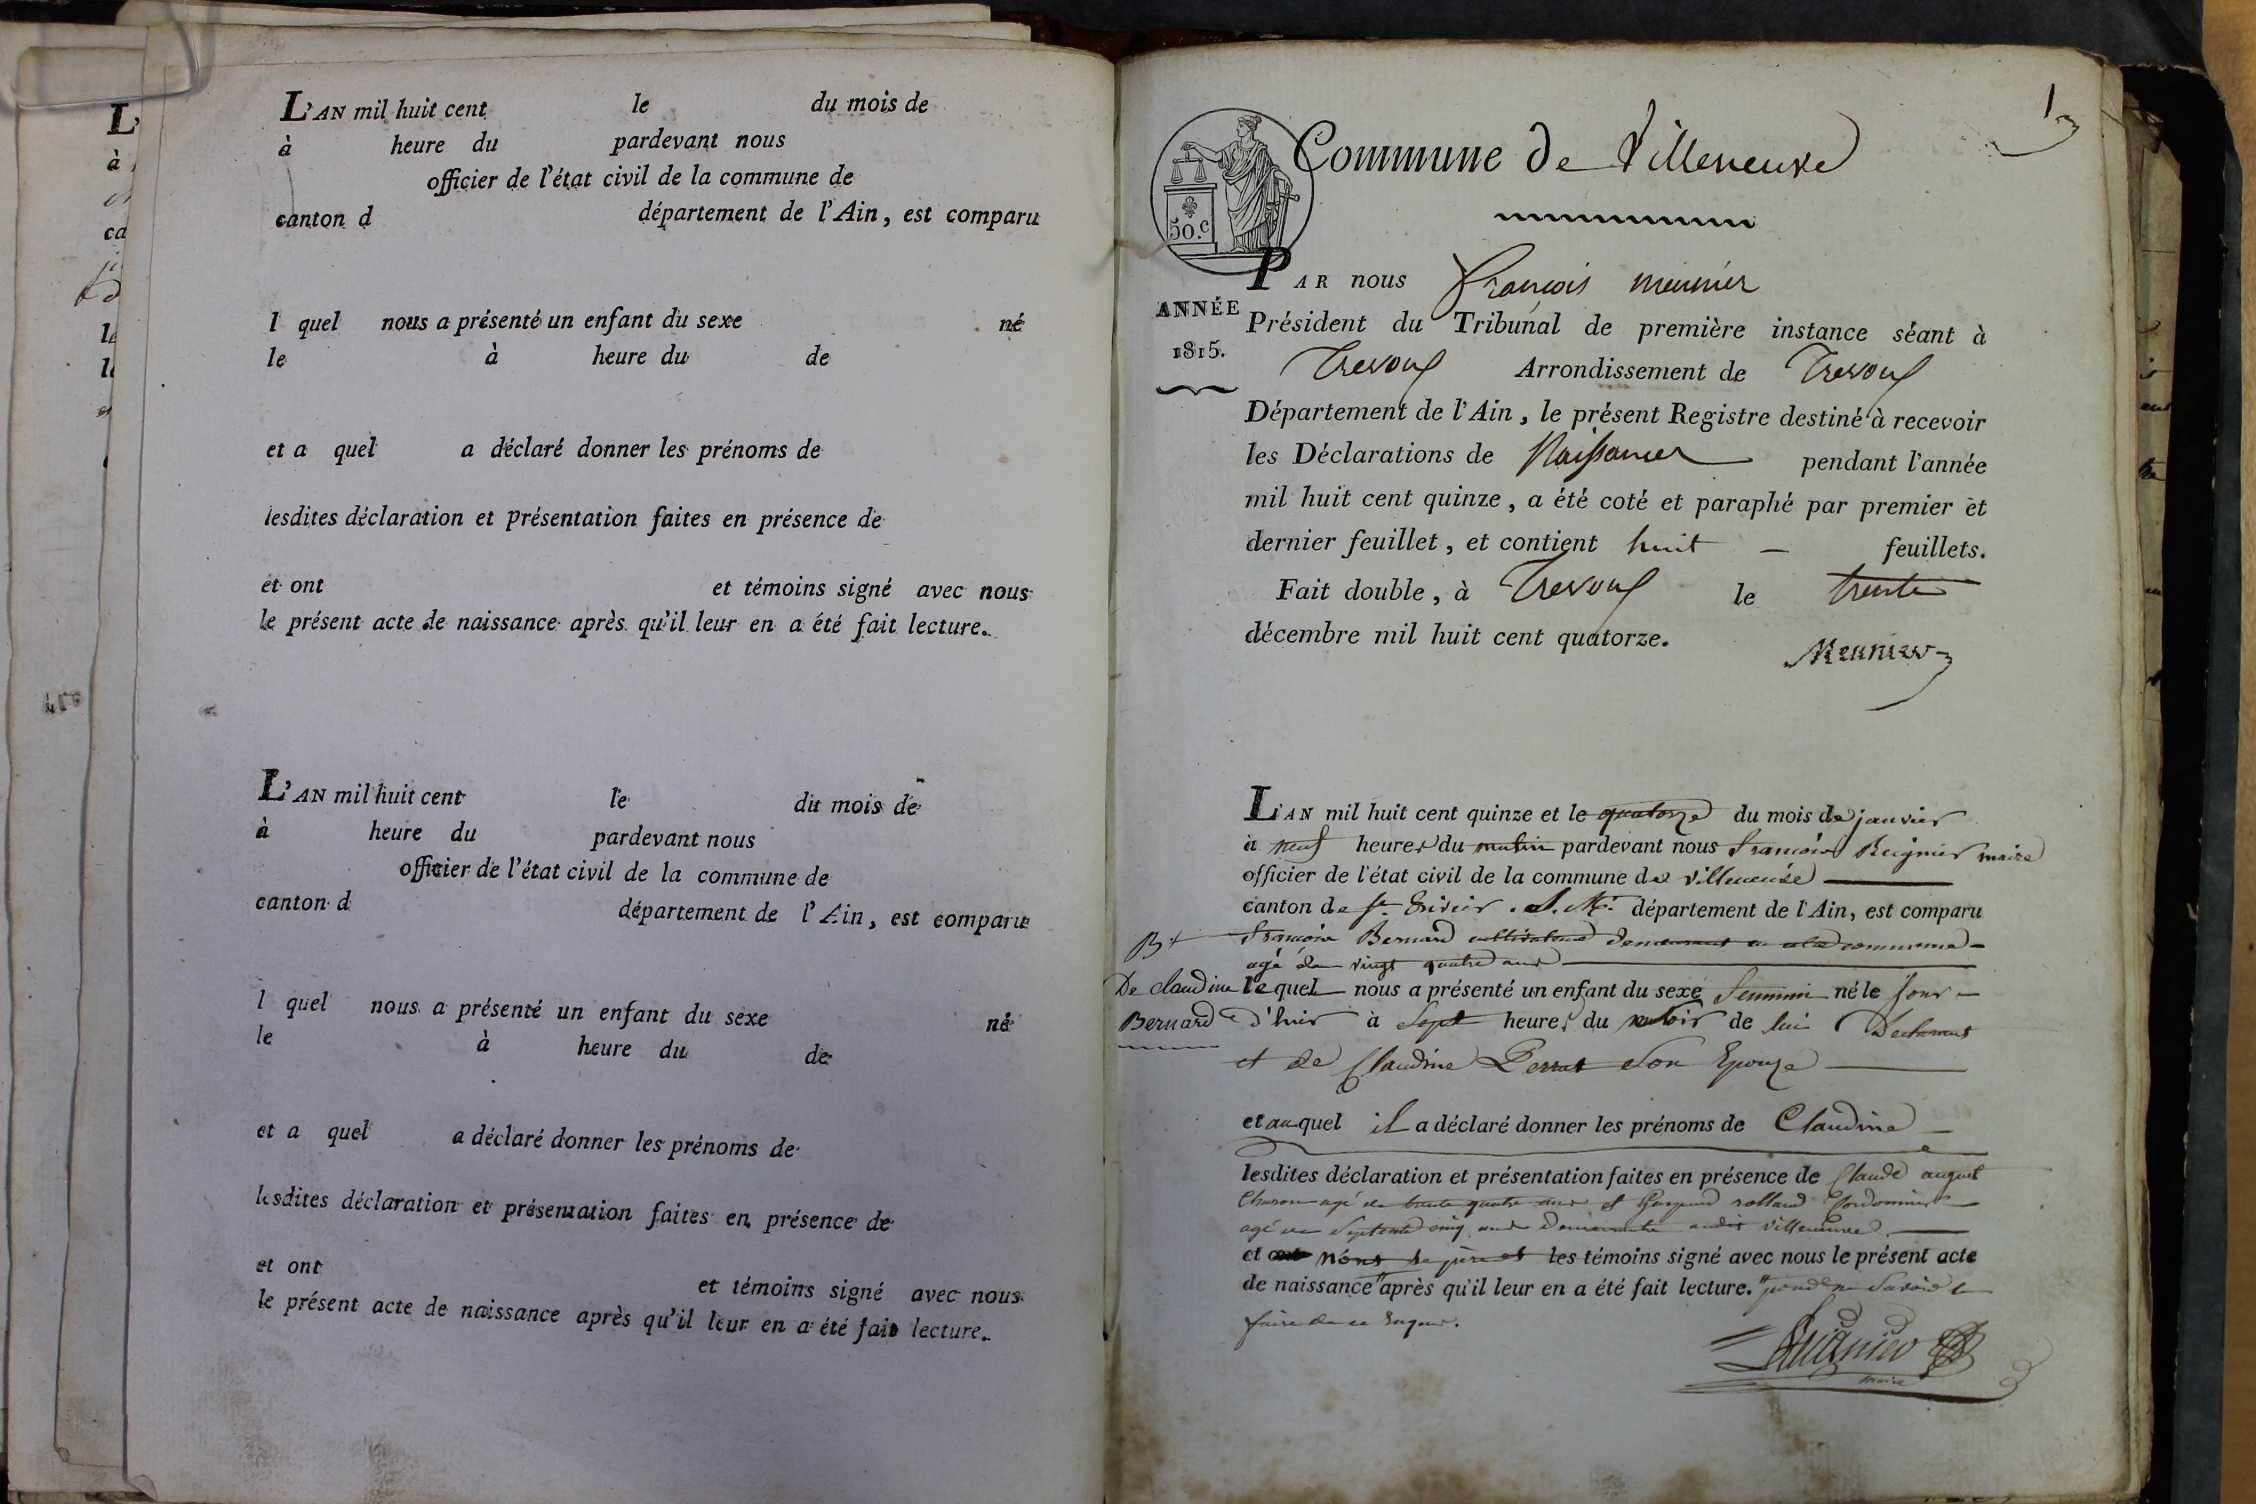 L'AN mil huit cent le du mois de
à heure du pardevant nous
officier de l'état civil de la commune de
canton d département de l'Ain, est comparu
l quel nous a présenté un enfant du sexe né
le à heure du de
et a quel a déclaré donner les prénoms de
lesdites déclaration et présentation faites en présence de
et ont et témoins signé avec nous
le présent acte de naissance après qu'il leur en a été fait lecture.
L'AN mil huit cent le du mois de
à heure du pardevant nous
officier de l'état civil de la commune de
canton d département de l'Ain, est comparu
l quel nous a présenté un enfant du sexe né
le à heure du de
et a quel a déclaré donner les prénoms de
lesdites déclaration et présentation faites en présence de
et ont et témoins signé avec nous
le présent acte de naissance après qu'il leur en a été fait lecture.
1
Commune de Villeneuve
50.c
ANNÉE
1815.
PAR nous François meunier
Président du Tribunal de première instance séant à
Trevoux Arrondissement de Trevoux
Département de l'Ain, le présent Registre destiné à recevoir
les Déclarations de Naissances pendant l'année
mil huit cent quinze, a été coté et paraphé par premier et
dernier feuillet, et contient huit feuillets.
Fait double, à Trevoux le trente
décembre mil huit cent quatorze.
Meunier
L'AN mil huit cent quinze et le quatorze du mois de janvier
à neuf heures du matin pardevant nous François Reignier maire
officier de l'état civil de la commune de villeneuve
canton de St. Trivier département de l'Ain, est comparu
François Bernard cultivateur demeurant en cette commune
agé de vingt quatre ans
le quel nous a présenté un enfant du sexe feminin né le jour
d'hier à Sept heures du soir de lui Declarant
et de Claudine Perrat son Epouze
Bt
De claudine
Bernard
et au quel il a déclaré donner les prénoms de Claudine
lesdites déclaration et présentation faites en présence de Claude auguet
Charon agé de trente quatre ans et Gaspard rolland Cordonnier
agé de Septente cinq ans demeurants audit villeneuve
et nons le père et les témoins signé avec nous le présent acte
de naissance après qu'il leur en a été fait lecture. pour ne Savoir le
faire de ce Enquis.
Reignier
maire